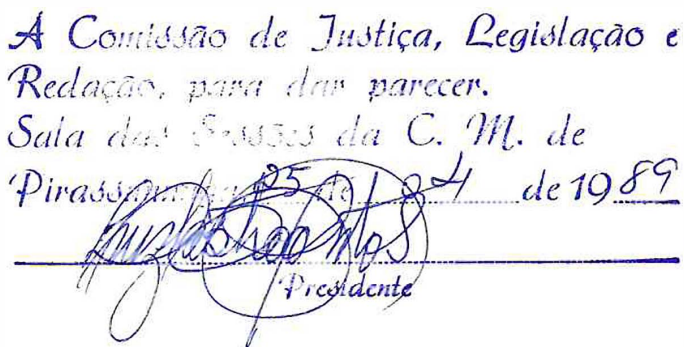 A Comissão de Justiça, Legislação e
Redação, para dar parecer.
Sala das Sessões da C. M. de
Pirassununga, 25 de 4 de 1989
Presidente